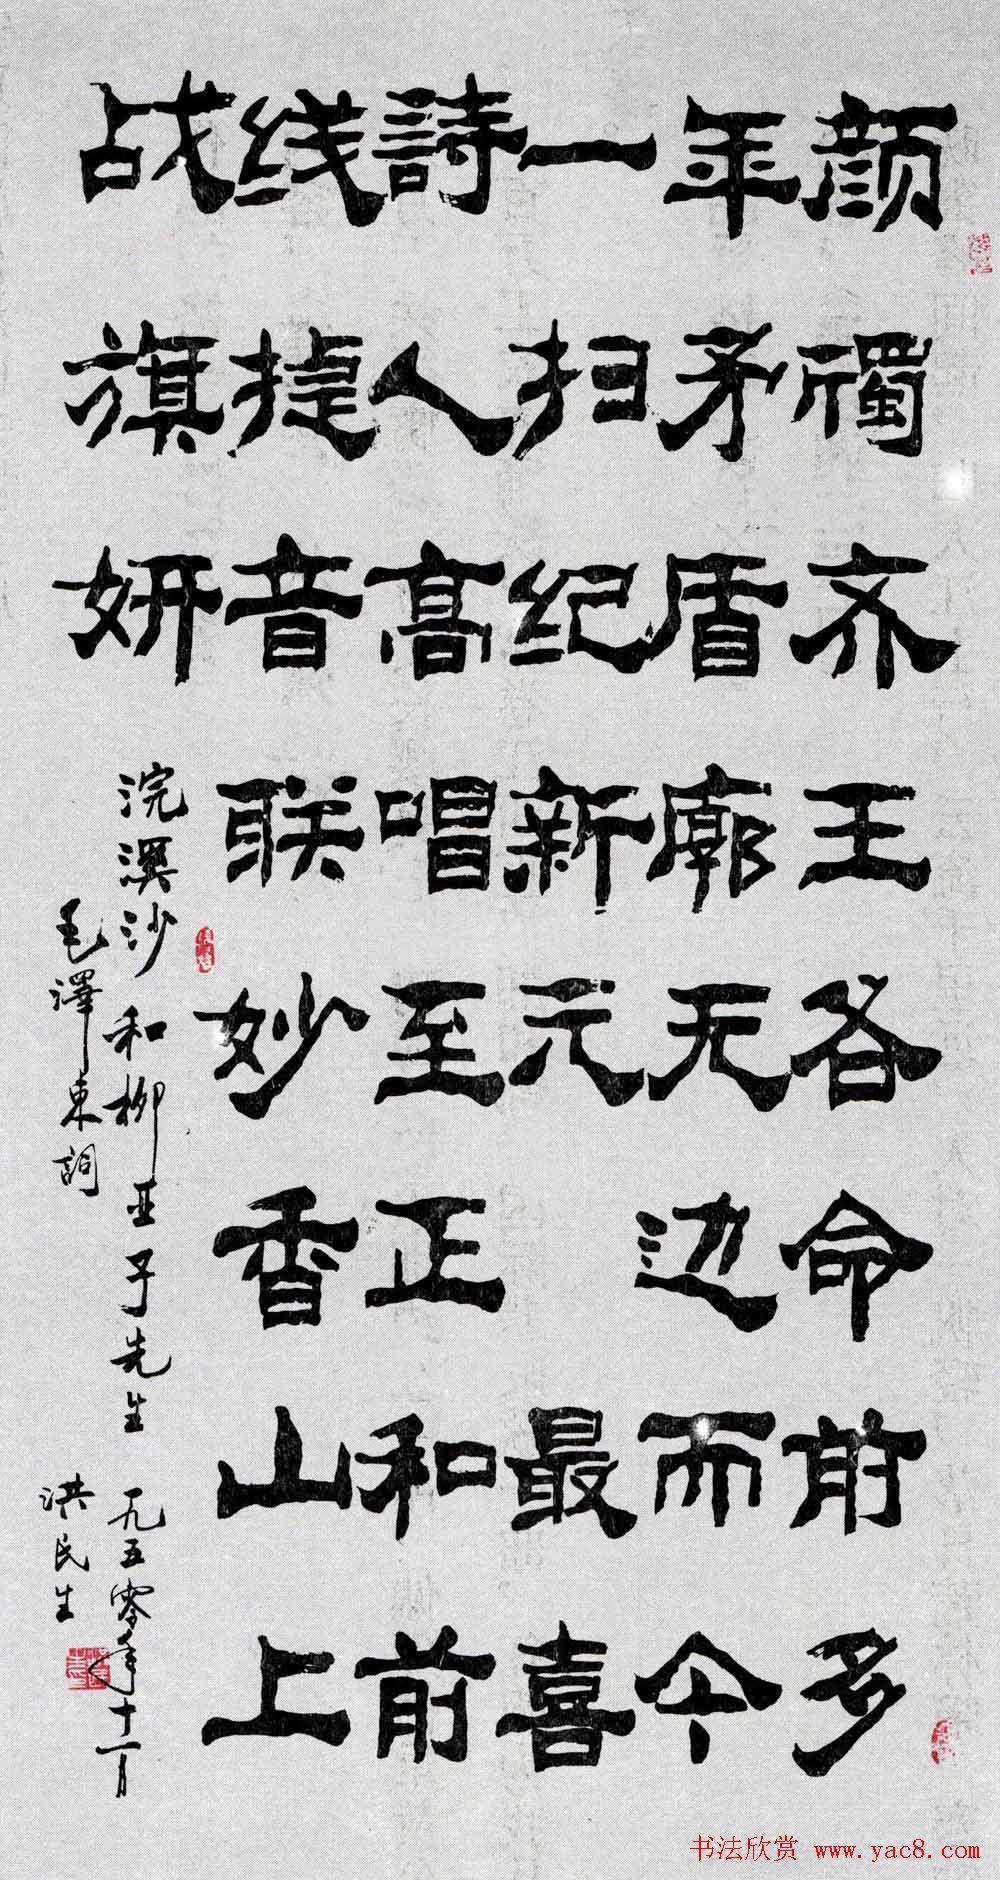 颜斶齐王各命前多
年矛盾廓无边而今
一扫纪新元最喜
詩人高唱至正和前
线捷音联妙香山上
战旗妍
浣溪沙 和柳亚子先生 一九五零年十一月
毛澤東詞 洪民生
书法欣赏 www.yac8.com